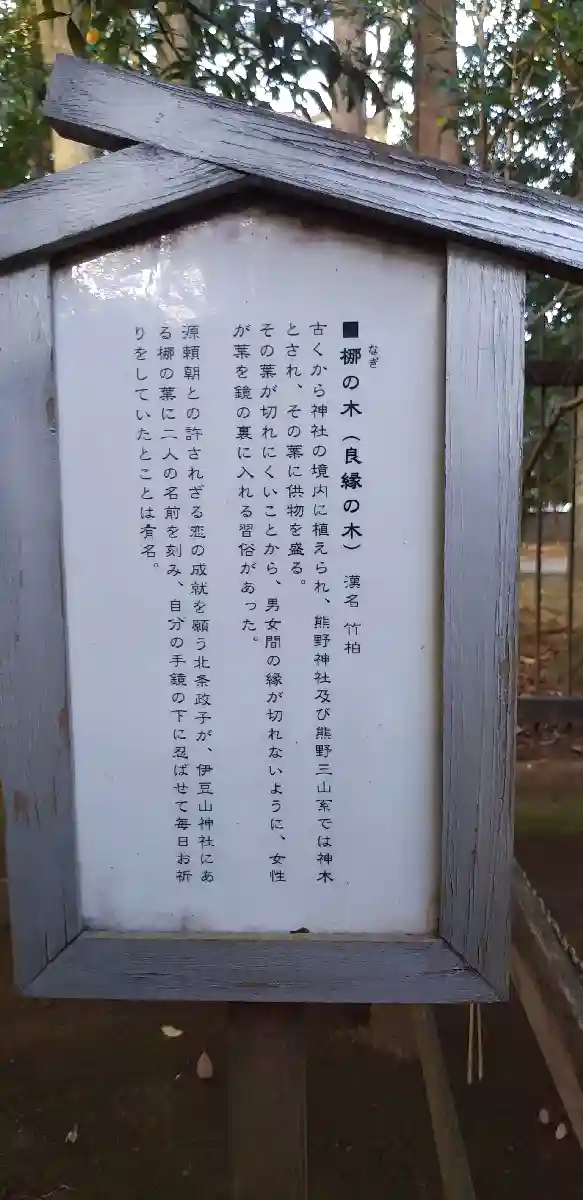 ■梛の木（良縁の木） 漢名 竹柏
なぎ
古くから神社の境内に植えられ、熊野神社及び熊野三山系では神木
とされ、その葉に供物を盛る。
その葉が切れにくいことから、男女間の縁が切れないように、女性
が葉を鏡の裏に入れる習俗があった。
源頼朝との許されざる恋の成就を願う北条政子が、伊豆山神社にあ
る梛の葉に二人の名前を刻み、自分の手鏡の下に忍ばせて毎日お祈
りをしていたとことは有名。